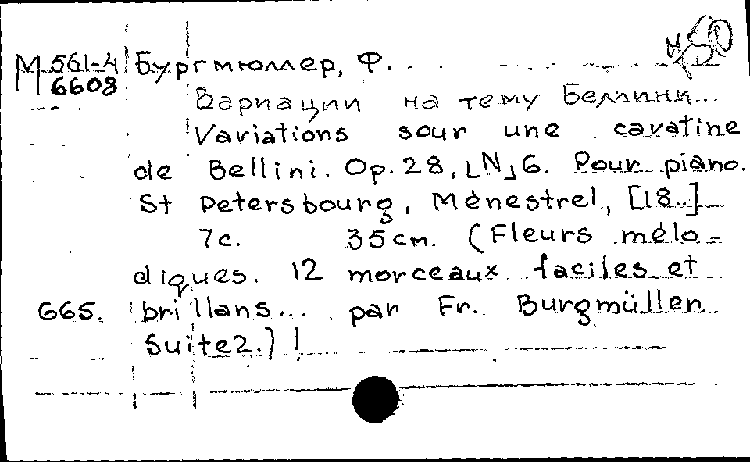 М 561-4 Бургмюллер, Ф.
6608
Вариации на тему Беллини...
Variations sour une cavatine
de Bellini. Op. 28, LN⌟6. Pour piano.
St Petersbourg, Ménestrel, [18..]
7с. 35см. (Fleurs mélo-
diques. 12 morceaux faciles et
665. brillans... par Fr. Burgmüller
Suite2.)